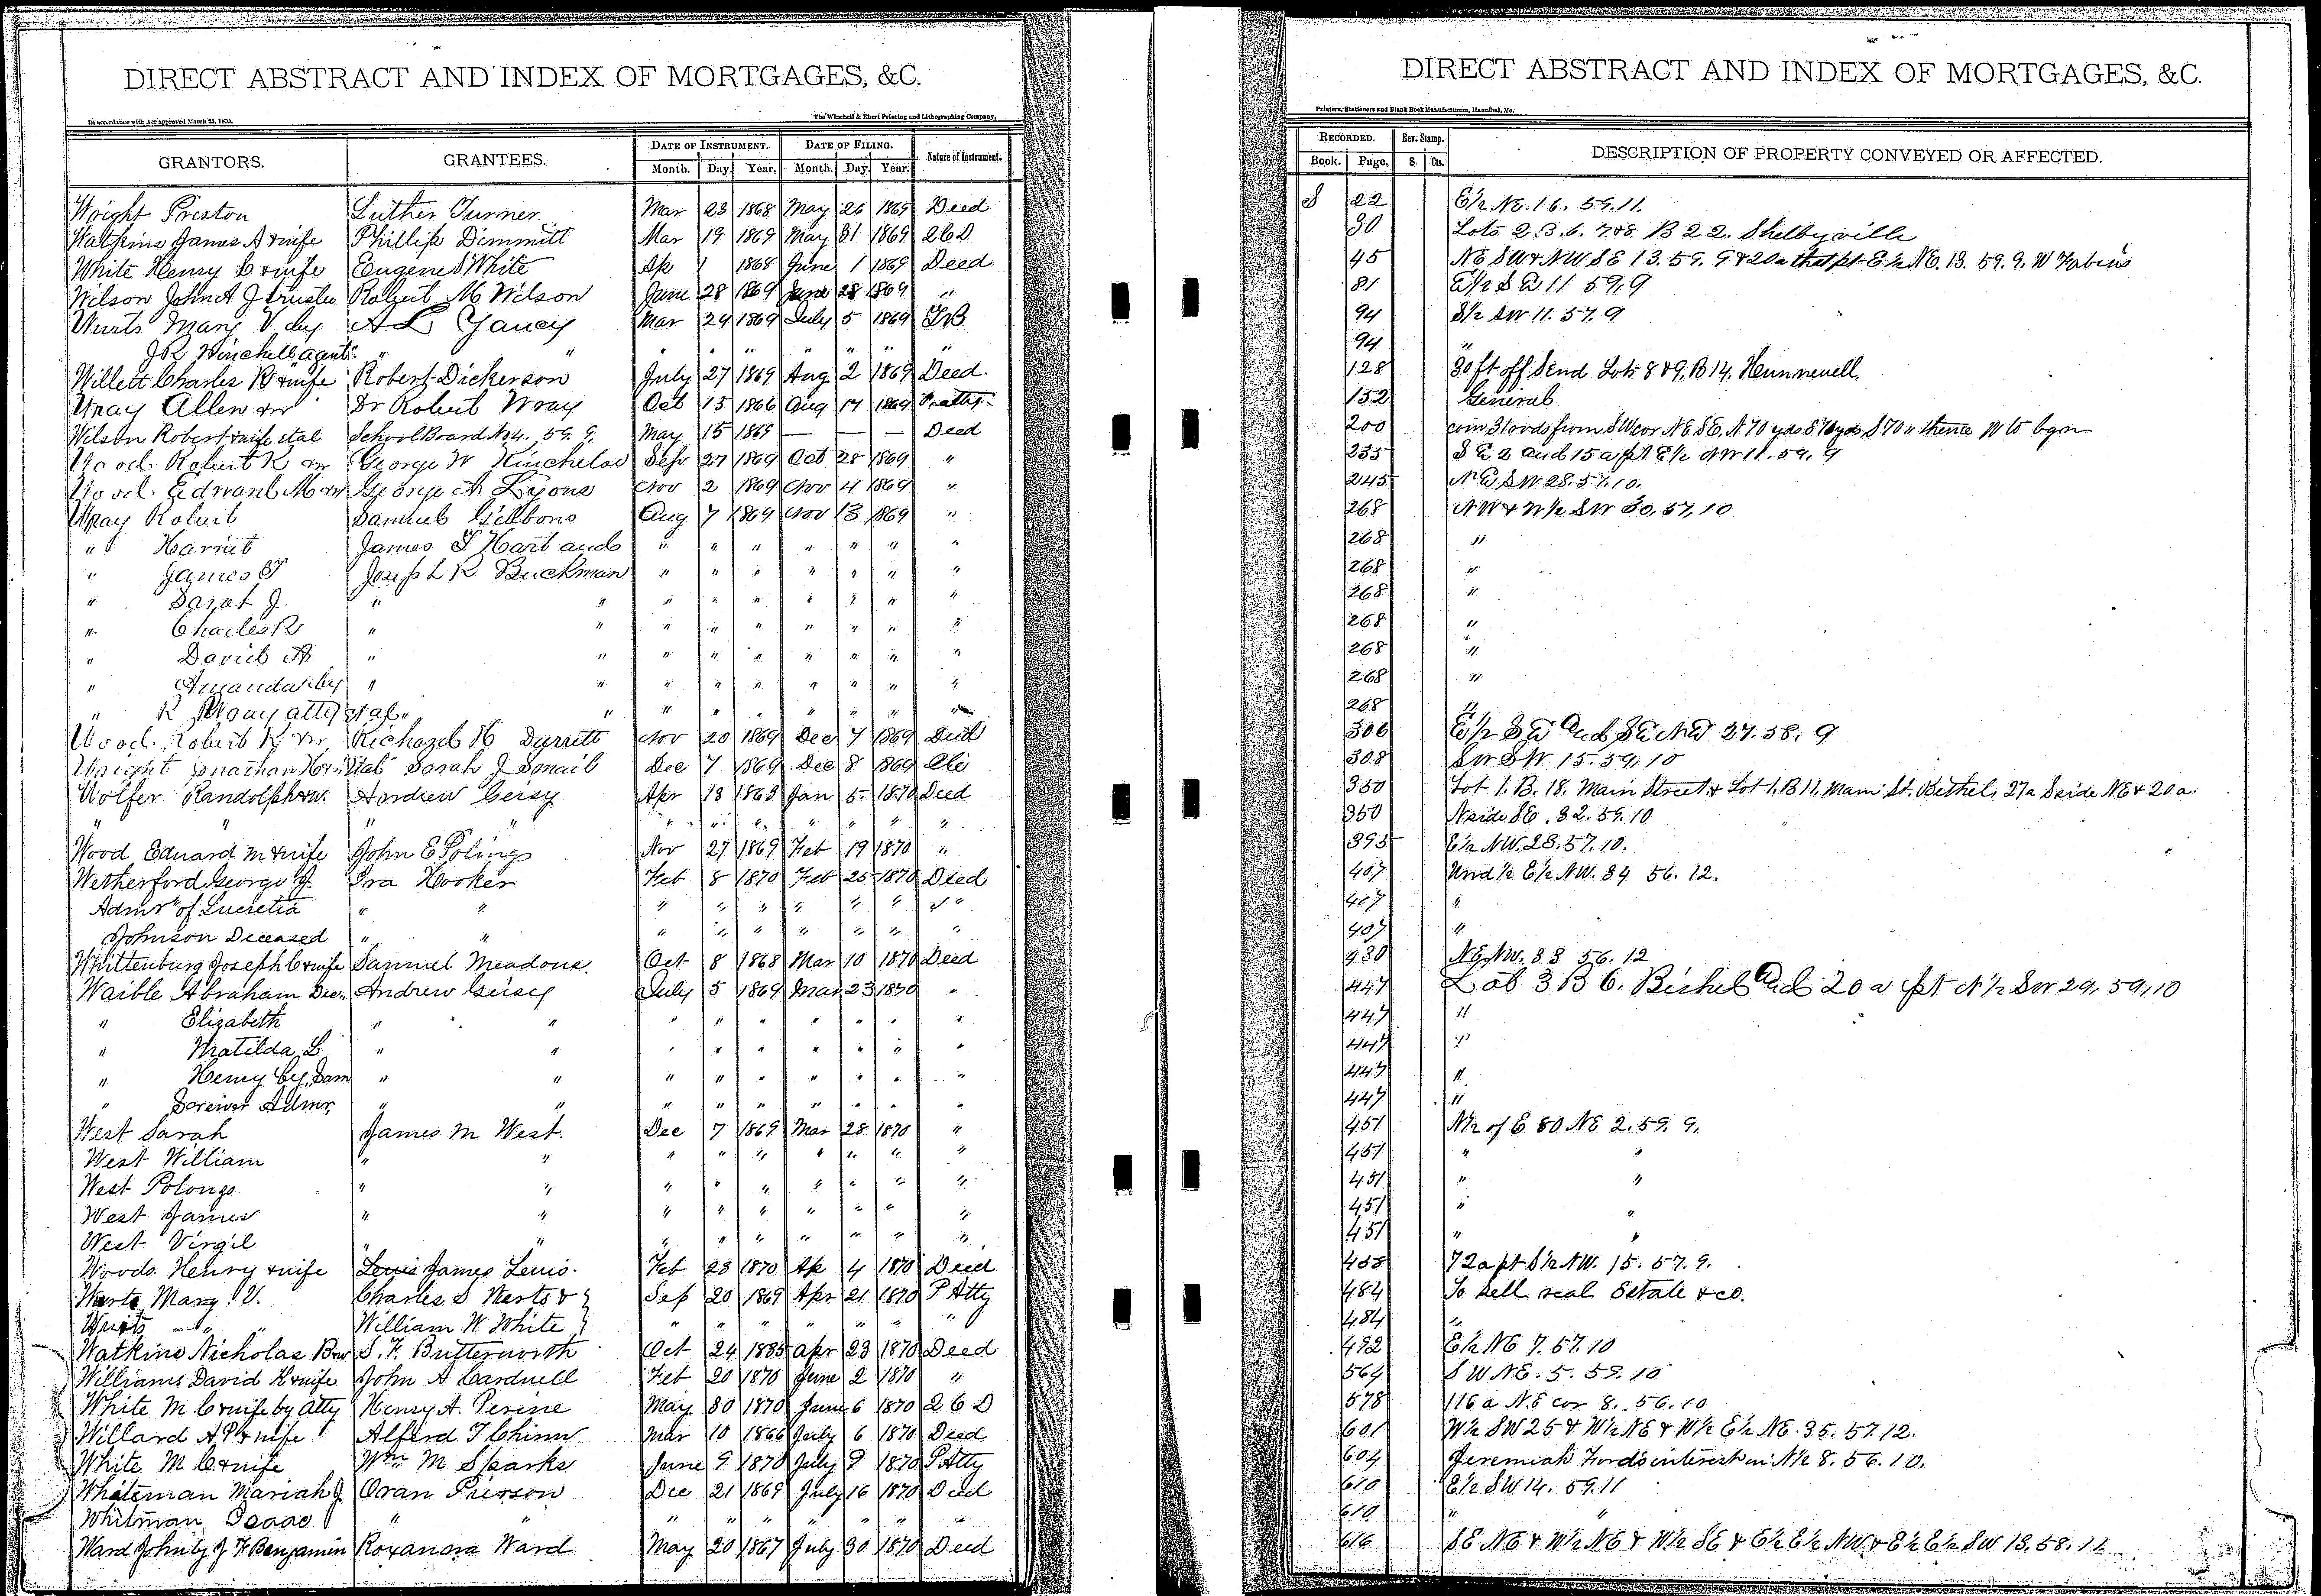 DIRECT ABSTRACT AND INDEX OF MORTGAGES, &C.
In accordance with Act approved March 25, 1870. The Winchell & Ebert Printing and Lithographing Company,
GRANTORS. GRANTEES. DATE OF INSTRUMENT. DATE OF FILING. Nature of Instrument.
Month. Day. Year. Month. Day. Year.
Wright Preston Luther Turner Mar 23 1868 May 26 1869 Deed
Watkins James A & wife Phillip Dimmitt Mar 19 1869 May 31 1869 2 6 D
White Henry C & wife Eugene S White Ap 1 1868 June 1 1869 Deed
Wilson John A J trustee Robert M Wilson June 28 1869 June 28 1869 "
Wurts Mary V by A L Yancy Mar 29 1869 July 5 1869 TB
J R Winchell agent " " " " " " " " "
Willett Charles R & wife Robert Dickerson July 27 1869 Aug 2 1869 Deed.
Wray Allen & w Dr Robert Wray Oct 15 1866 Aug 17 1869 P atty.
Wilson Robert & wife et al School Board No 4. 59. 9. May 15 1869 — — — Deed
Wood Robert K & w George W Kincheloe Sep 27 1869 Oct 28 1869 "
Wood Edward M & w George A Lyons Nov 2 1869 Nov 4 1869 "
Wray Robert Samuel Gibbons Aug 7 1869 Nov 13 1869 "
" Harriet James T Hart and " " " " " " "
" James T Joseph R Buckman " " " " " " "
" Sarah J. " " " " " " " " "
" Charles R " " " " " " " " "
" David A " " " " " " " " "
" Amanda by " " " " " " " " "
" R Wray atty et al " " " " " " " " "
Wood Robert K & w Richard H Durrett Nov 20 1869 Dec 7 1869 Deed
Wright Jonathan Sarah J Smail Dec 7 1869 Dec 8 1869
Wolfer Randolph & w. Andrew Geisy Apr 13 1868 Jan 5 1870 Deed
" " " " " " " " " " "
Wood Edward M & wife John E Polings Nov 27 1869 Feb 19 1870 "
Wetherford George J. Ira Hooker Feb 8 1870 Feb 25 1870 Deed
Admr of Lucretia " " " " " " " " "
Johnson Deceased " " " " " " " "
Whittenburg Joseph C & wife Samuel Meadons. Oct 8 1868 Mar 10 1870 Deed
Waible Abraham Dec. Andrew Geisy July 5 1869 Mar 23 1870 "
" Elizabeth " " " " " " " " "
" Matilda L " " " " " " " " "
" Henry by Sam " " " " " " " " "
" Admr. " " " " " " " " "
West Sarah James M West. Dec 7 1869 Mar 28 1870 "
West William " " " " " " " " "
West Polongo " " " " " " " " "
West James " " " " " " " " "
West Virgil " " " " " " " " "
Woods Henry & wife Lewis James Lewis. Feb 23 1870 Ap 4 1870 Deed
Wurts Mary. V. Charles S Wurts & } Sep 20 1869 Apr 21 1870 P Atty
Wurts " " William W White } " " " " " " "
Watkins Nicholas B & w S. F. Butterworth Oct 24 1885 Apr 23 1870 Deed
Williams David K & wife John A Cardwell Feb 20 1870 June 2 1870 "
White M C & wife by Atty Henry A. Perine May 30 1870 June 6 1870 2 6 D
Willard A P & wife Alferd T Chinn Mar 10 1866 July 6 1870 Deed
White M C & wife Wm M Sparks June 9 1870 July 9 1870 P Atty
Whiteman Mariah J. Oran Pierson Dec 21 1869 July 16 1870 Deed
Whitman Isaac " " " " " " " " "
Ward John by J F Benjamin Roxanara Ward May 20 1867 July 30 1870 Deed
DIRECT ABSTRACT AND INDEX OF MORTGAGES, &C.
Printers, Stationers and Blank Book Manufacturers, Hannibal, Mo.
RECORDED. Rev. Stamp. DESCRIPTION OF PROPERTY CONVEYED OR AFFECTED.
Book. Page. $ Cts.
S 22 E½ NE. 16. 59. 11.
30 Lots 2. 3. 6. 7 & 8. B 22. Shelbyville
45 NE SW & NW SE 13. 59. 9 & 20a that pt E½ NE. 13. 59. 9. W Fabius
81 E½ SE 11 59. 9
94 S½ SW 11. 57. 9
94 "
128 30 ft off S end Lots 8 & 9. B 14. Hunnewell.
152 General
200 com 31 rods from SW cor NE SE, N 70 yds E 70 yds S 70 " thence W to bgn
235 S E 2 and 15 a pt E½ NW 11. 59. 9
245 NE SW 28. 57. 10.
268 NW & W½ SW 30, 57, 10
268 "
268 "
268 "
268 "
268 "
268 "
268 "
306 E½ SE and SE NE 27. 58. 9
308 SW SW 15. 59. 10
350 Lot 1. B. 18. Main Street & Lot 1. B 11. Main St. Bethel, 27a S side NE & 20a.
350 N side SE. 32. 59. 10
395 E½ NW. 28. 57. 10.
407 Und ½ E½ NW. 34 56. 12.
407 "
407 "
430 NE NW. 33 56. 12
447 Lot 3 B 6. Bethel and 20 a pt N½ SW 29, 59, 10
447 "
447 "
447 "
447 "
451 N½ of E 80 NE 2. 59. 9.
451 " "
451 " "
451 " "
451 " "
458 72a pt S½ NW. 15. 57. 9.
484 To sell real Estate & co.
484 "
492 E½ NE 7. 57. 10
564 SW NE. 5. 59. 10
578 116 a N. E cor 8. 56. 10
601 W½ SW 25 & W½ NE & W½ E½ NE. 35. 57. 12.
604 Jeremiah Ford's interest in N½ 8. 56. 10.
610 E½ SW 14. 59. 11
610 " "
616 SE NE & W½ NE & W½ SE & E½ E½ NW & E½ E½ SW 13. 58. 12